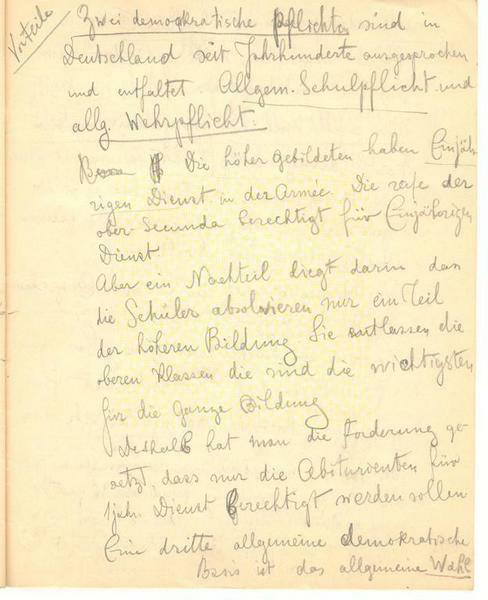 Vorteile
Zwei demokratische Pflichten sind in
Deutschland seit Jahrhunderte ausgesprochen
und entfaltet. Allgem. Schulpflicht und
allg. Wehrpflicht.
Die höher gebildeten haben Einjäh-
rigen Dienst in der Armée. Die reife der
ober-Secunda berechtigt für Einjährigen
Dienst
Aber ein Nachteil liegt darin dan
die Schüler absolvieren nur ein Teil
der höheren Bildung Sie entlassen die
oberen Klassen die sind die wichtigsten
für die ganze Bildung
Deshalb hat man die Forderung ge-
setzt, dass nur die Abiturienten für
1jähr. Dienst berechtigt werden sollen
Eine dritte allgemeine demokratische
Basis ist das allgemeine Wahl